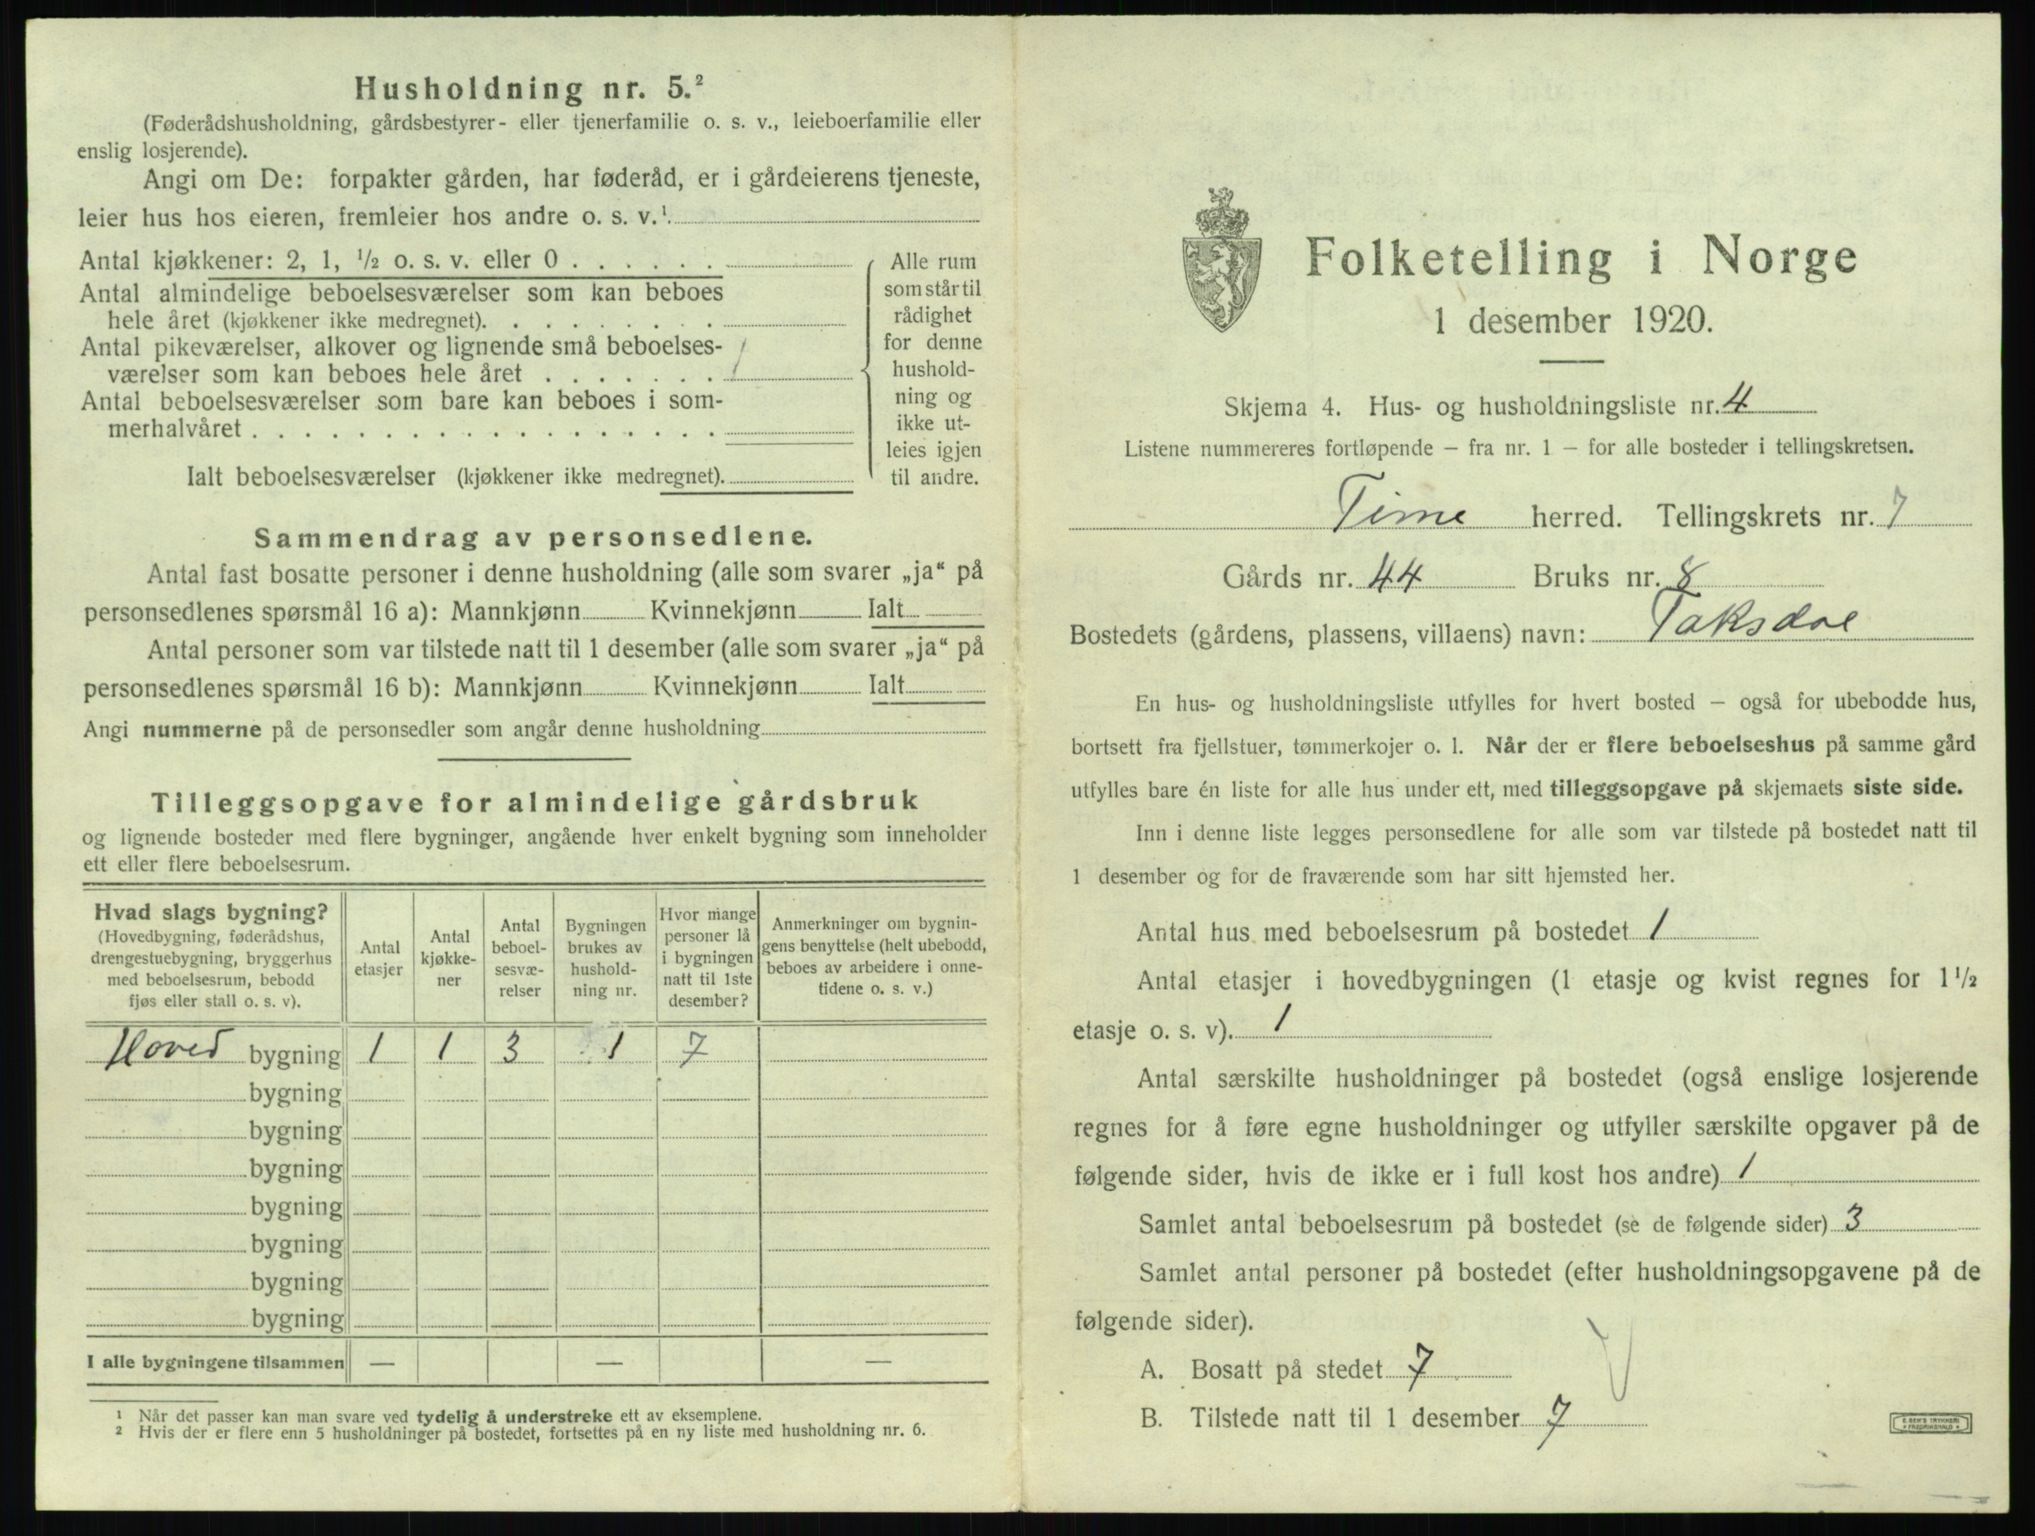 Husholdning nr. 5.²
(Føderådshusholdning, gårdsbestyrer- eller tjenerfamilie o. s. v., leieboerfamilie eller
enslig losjerende).
Angi om De: forpakter gården, har føderåd, er i gårdeierens tjeneste,
leier hus hos eieren, fremleier hos andre o. s. v.¹.
Antal kjøkkener: 2, 1, ½ o. s. v. eller 0 . . . . . .
Antal almindelige beboelsesværelser som kan beboes
hele året (kjøkkener ikke medregnet). . . . . . . . .
Antal pikeværelser, alkover og lignende små beboelses-
værelser som kan beboes hele året . . . . . . .
Antal beboelsesværelser som bare kan beboes i som-
merhalvåret . . . . . . . . . . . . . . . . . .
Ialt beboelsesværelser (kjøkkener ikke medregnet).
Alle rum
som står til
rådighet
for denne
hushold-
ning og
ikke ut-
leies igjen
til andre.
Sammendrag av personsedlene.
Antal fast bosatte personer i denne husholdning (alle som svarer „ja“ på
personsedlenes spørsmål 16 a): Mannkjønn Kvinnekjønn Ialt
Antal personer som var tilstede natt til 1 desember (alle som svarer „ja“ på
personsedlenes spørsmål 16 b): Mannkjønn Kvinnekjønn Ialt
Angi nummerne på de personsedler som angår denne husholdning
Tilleggsopgave for almindelige gårdsbruk
og lignende bosteder med flere bygninger, angående hver enkelt bygning som inneholder
ett eller flere beboelsesrum.
Hvad slags bygning?
(Hovedbygning, føderådshus,
drengestuebygning, bryggerhus
med beboelsesrum, bebodd
fjøs eller stall o. s. v).
Antal
etasjer
Antal
kjøkke-
ner
Antal
beboel-
sesvæ-
relser
Bygningen
brukes av
hushold-
ning nr.
Hvor mange
personer lå
i bygningen
natt til 1ste
desember?
Anmerkninger om bygnin-
gens benyttelse (helt ubebodd,
beboes av arbeidere i onne-
tidene o. s. v.)
Hoved bygning 1 1 3 1 7
bygning
bygning
bygning
bygning
bygning
bygning
bygning
I alle bygningene tilsammen — — —
¹ Når det passer kan man svare ved tydelig å understreke ett av eksemplene.
² Hvis der er flere enn 5 husholdninger på bostedet, fortsettes på en ny liste med husholdning nr. 6.
Folketelling i Norge
1 desember 1920.
Skjema 4. Hus- og husholdningsliste nr. 4
Listene nummereres fortløpende – fra nr. 1 – for alle bosteder i tellingskretsen.
Time herred. Tellingskrets nr. 7
Gårds nr. 44 Bruks nr. 8
Bostedets (gårdens, plassens, villaens) navn: Taksdal
En hus- og husholdningsliste utfylles for hvert bosted – også for ubebodde hus,
bortsett fra fjellstuer, tømmerkojer o. l. Når der er flere beboelseshus på samme gård
utfylles bare én liste for alle hus under ett, med tilleggsopgave på skjemaets siste side.
Inn i denne liste legges personsedlene for alle som var tilstede på bostedet natt til
1 desember og for de fraværende som har sitt hjemsted her.
Antal hus med beboelsesrum på bostedet 1
Antal etasjer i hovedbygningen (1 etasje og kvist regnes for 1½
etasje o. s. v). 1
Antal særskilte husholdninger på bostedet (også enslige losjerende
regnes for å føre egne husholdninger og utfyller særskilte opgaver på de
følgende sider, hvis de ikke er i full kost hos andre) 1
Samlet antal beboelsesrum på bostedet (se de følgende sider) 3
Samlet antal personer på bostedet (efter husholdningsopgavene på de
følgende sider).
A. Bosatt på stedet 7
B. Tilstede natt til 1 desember 7